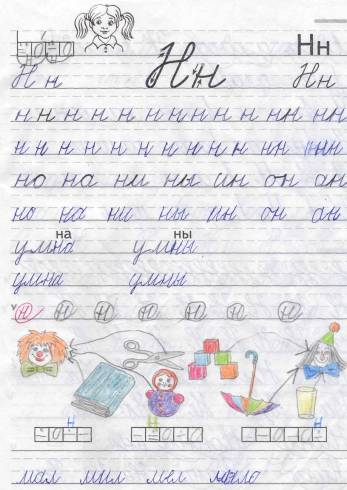 Нн
Н н Н н Н н
н н н н н н н н н н н нн нн
н н н н н н н н н н н нн нн
но на ни ны ин он ан
но на ни ны ин он ан
на ны
умна умны
умна умны
н н н н н н н
н н н
мал мил мел мыло